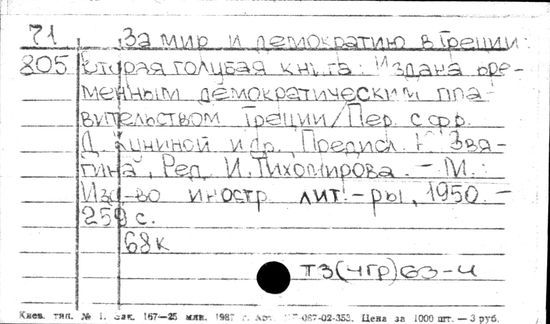 71 За мир и демократию в Греции:
805 вторая голубая книга: Издана вре-
менным демократическим пра-
вительством Греции/Пер. с фр.
Д. Куниной и др., Предисл. К. Звя-
гина, Ред. И. Тихомирова. – М.:
Изд-во иностр лит.-ры, 1950. –
259 с.
68к
Т3(4Гр)63-4
Киев. тип. № 1. Зак. 167—25 млн. 1987 г. 067-02-353. Цена за 1000 шт. — 3 руб.